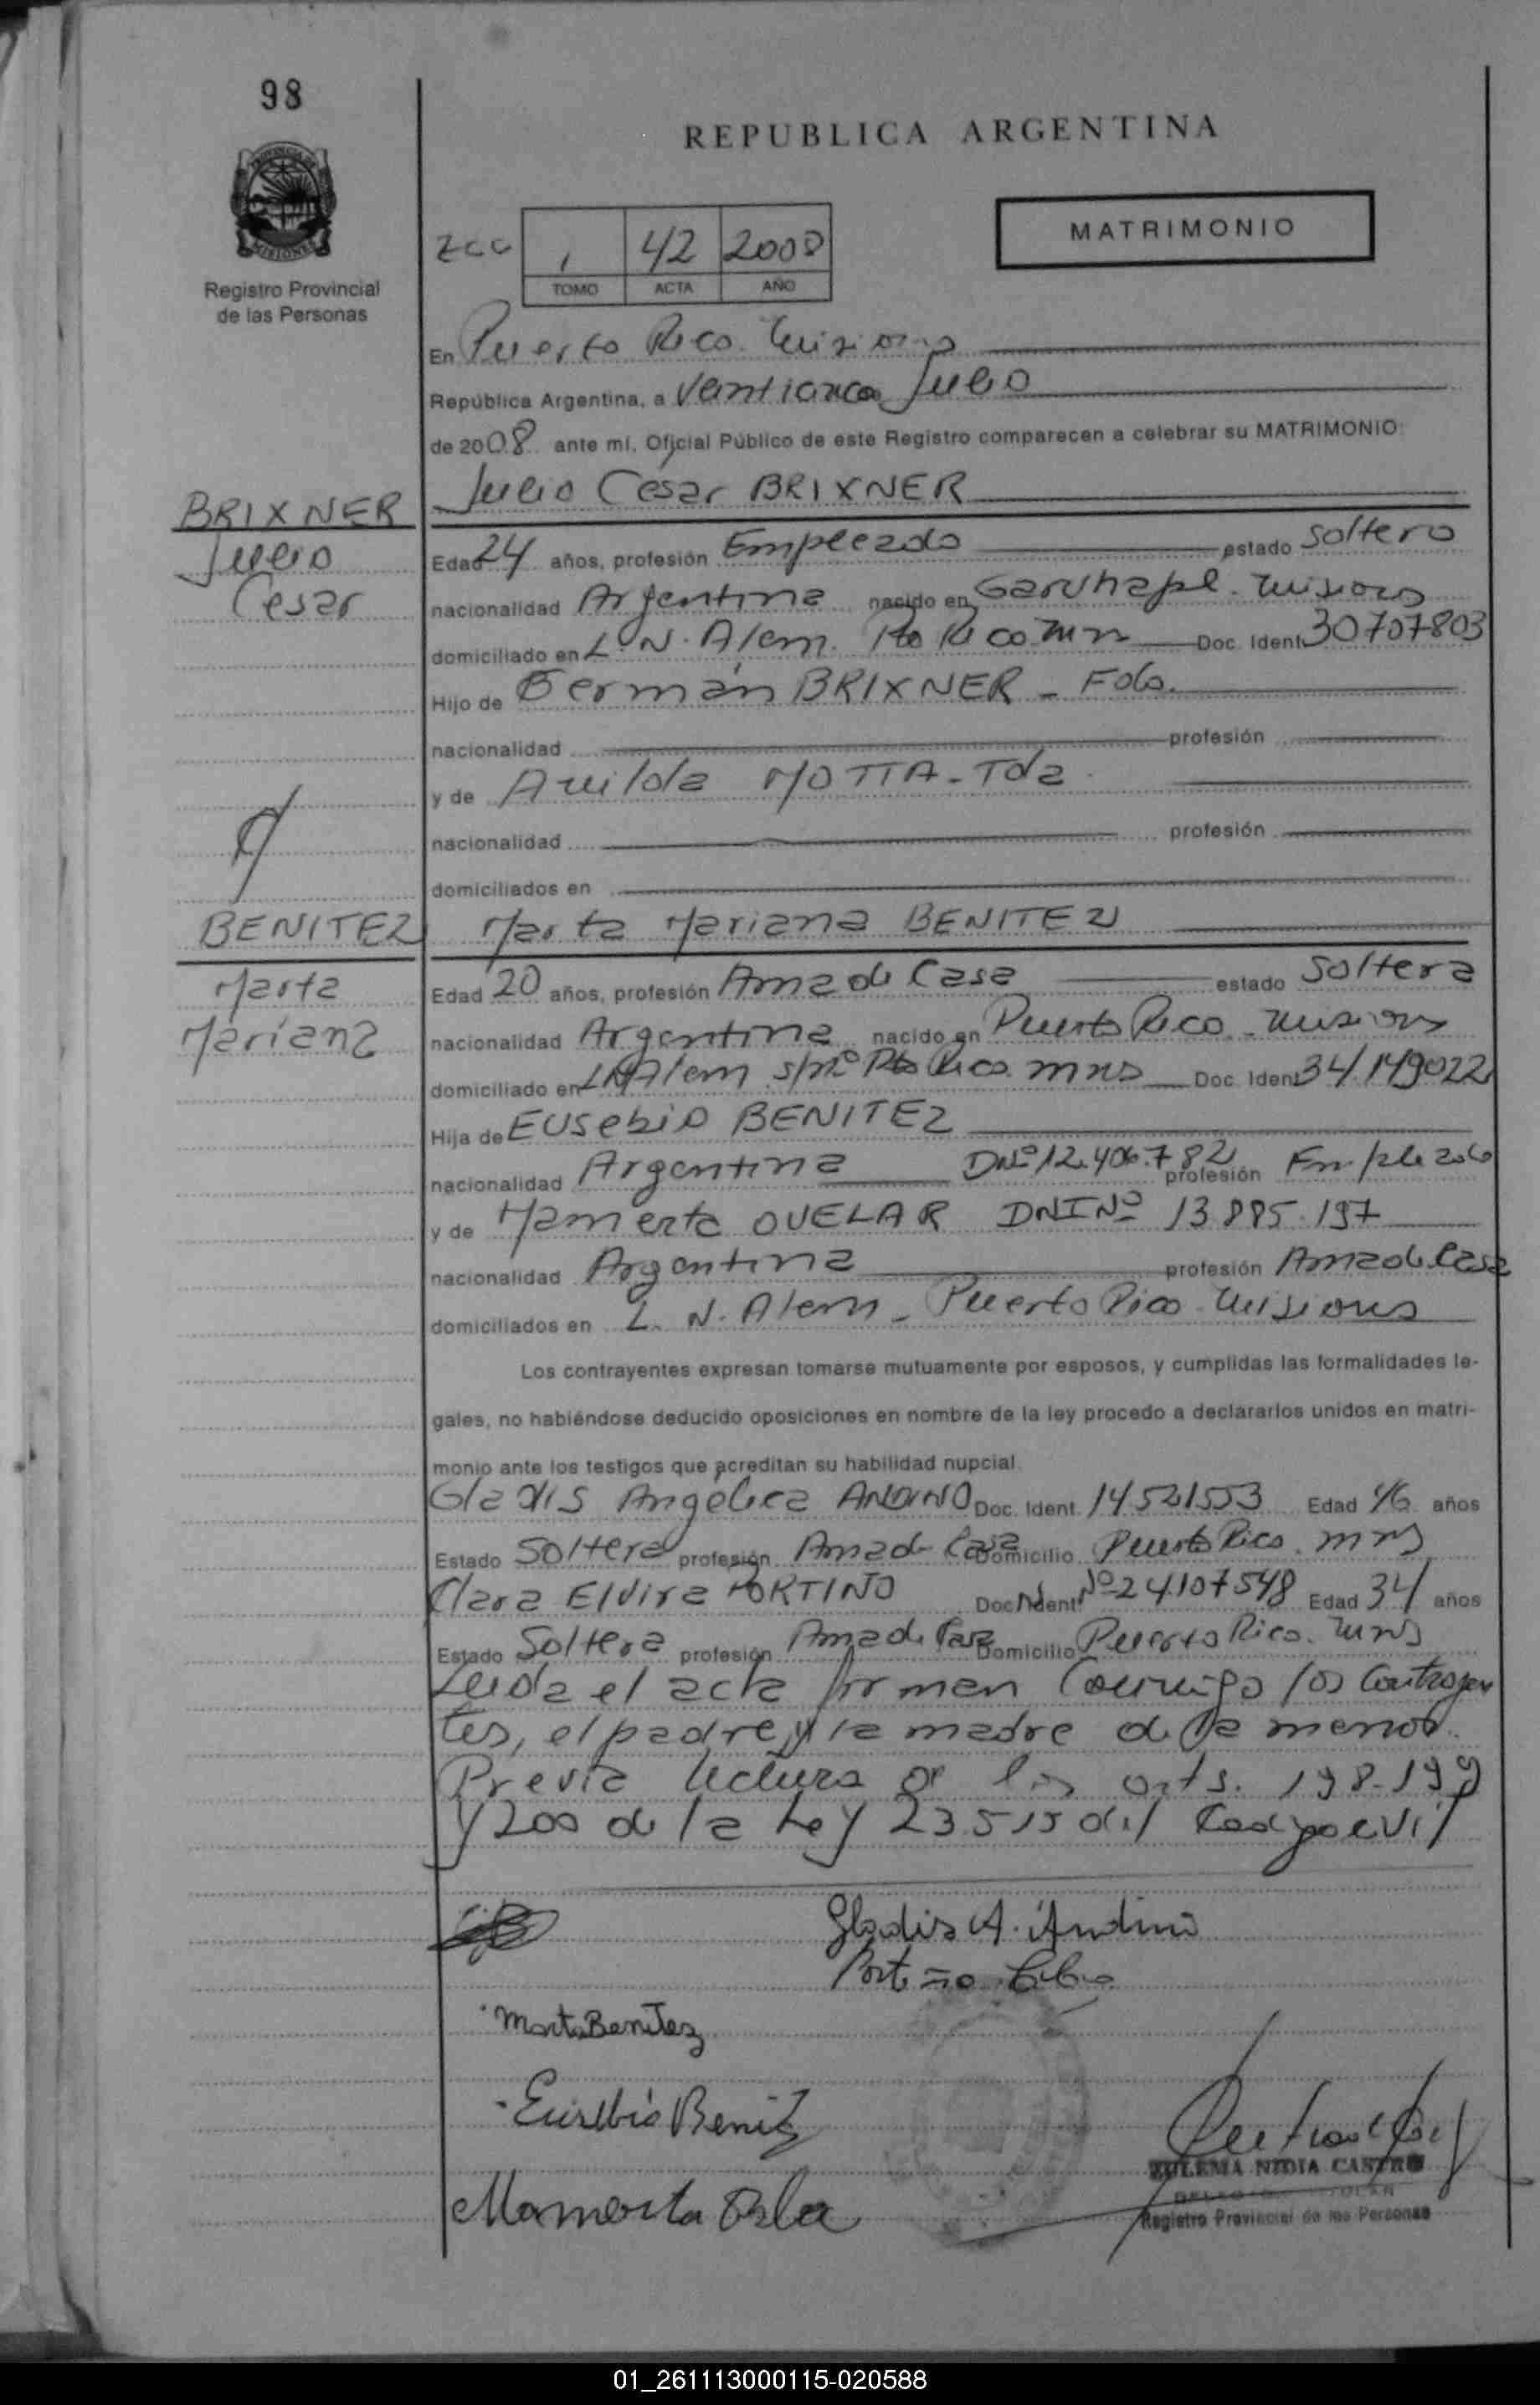 98
REPUBLICA ARGENTINA
PROVINCIA DE
MISIONES
Registro Provincial
de las Personas
1 42 2008
TOMO ACTA AÑO
MATRIMONIO
En Puerto Rico. Misiones
República Argentina, a Veinticinco Julio
de 2008 ante mí, Oficial Público de este Registro comparecen a celebrar su MATRIMONIO:
BRIXNER
Julio
Cesar
Julio César BRIXNER
Edad 24 años, profesión Empleado estado Soltero
nacionalidad Argentina nacido en Garuhapé - Misiones
domiciliado en L. N. Alem. Pto Rico Mns Doc. Ident. 30707803
Hijo de Germán BRIXNER - Fdo.
nacionalidad profesión
y de MOTTA - Fda
nacionalidad profesión
domiciliados en
BENITEZ
Marta
Mariana
Marta Mariana BENITEZ
Edad 20 años, profesión Ama de Casa estado Soltera
nacionalidad Argentina nacido en Puerto Rico - Misiones
domiciliado en LN Alem s/nº Pto Rico. Mns Doc. Ident. 34149022
Hija de EUsebio BENITEZ
nacionalidad Argentina 12.406.782 profesión Empleado
y de Mamerta OVELAR DNI Nº 13885.197
nacionalidad Argentina profesión Ama de Casa
domiciliados en L. N. Alem - Puerto Rico - Misiones
Los contrayentes expresan tomarse mutuamente por esposos, y cumplidas las formalidades le-
gales, no habiéndose deducido oposiciones en nombre de la ley procedo a declararlos unidos en matri-
monio ante los testigos que acreditan su habilidad nupcial.
Gladis Angélica ANDINO Doc. Ident. 14521553 Edad 46 años
Estado Soltera profesión Ama de Casa Domicilio Puerto Rico. Mns
Clara Elvira PORTIÑO Doc. Ident. Nº 24107548 Edad 34 años
Estado Soltera profesión Ama de Casa Domicilio Puerto Rico. Mns
Leida el acta firman Conmigo los Contrayen
tes, el padre y la madre de la menor.
Previa lectura de los arts. 198-199
y 200 de la Ley 23.515 del Codigo civil
Gladis A. Andino
Portiño
Marta Benitez
Eusebio Benitez
Mamerta
ZULEMA NIDIA CASTRO
Registro Provincial de las Personas
01_261113000115-020588